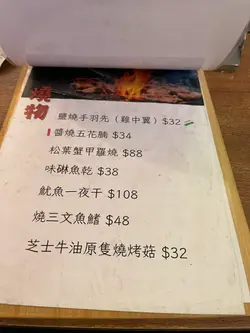 燒物
鹽燒手羽先（雞中翼）$32
醬燒五花腩 $34
松葉蟹甲羅燒 $88
味醂魚乾 $38
魷魚一夜干 $108
燒三文魚鰭 $48
芝士牛油原隻燒烤菇 $32